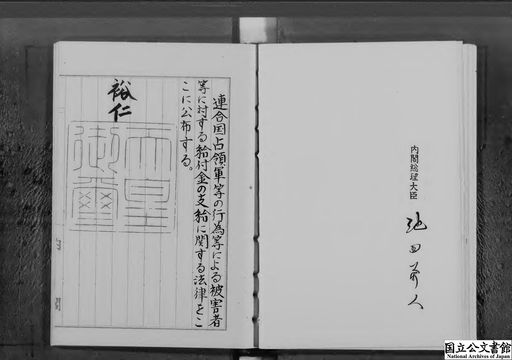 連合国占領軍等の行為等による被害者
等に対する給付金の支給に関する法律をこ
こに公布する。
裕仁
天皇
御璽
内閣総理大臣
池田勇人
国立公文書館
National Archives of Japan